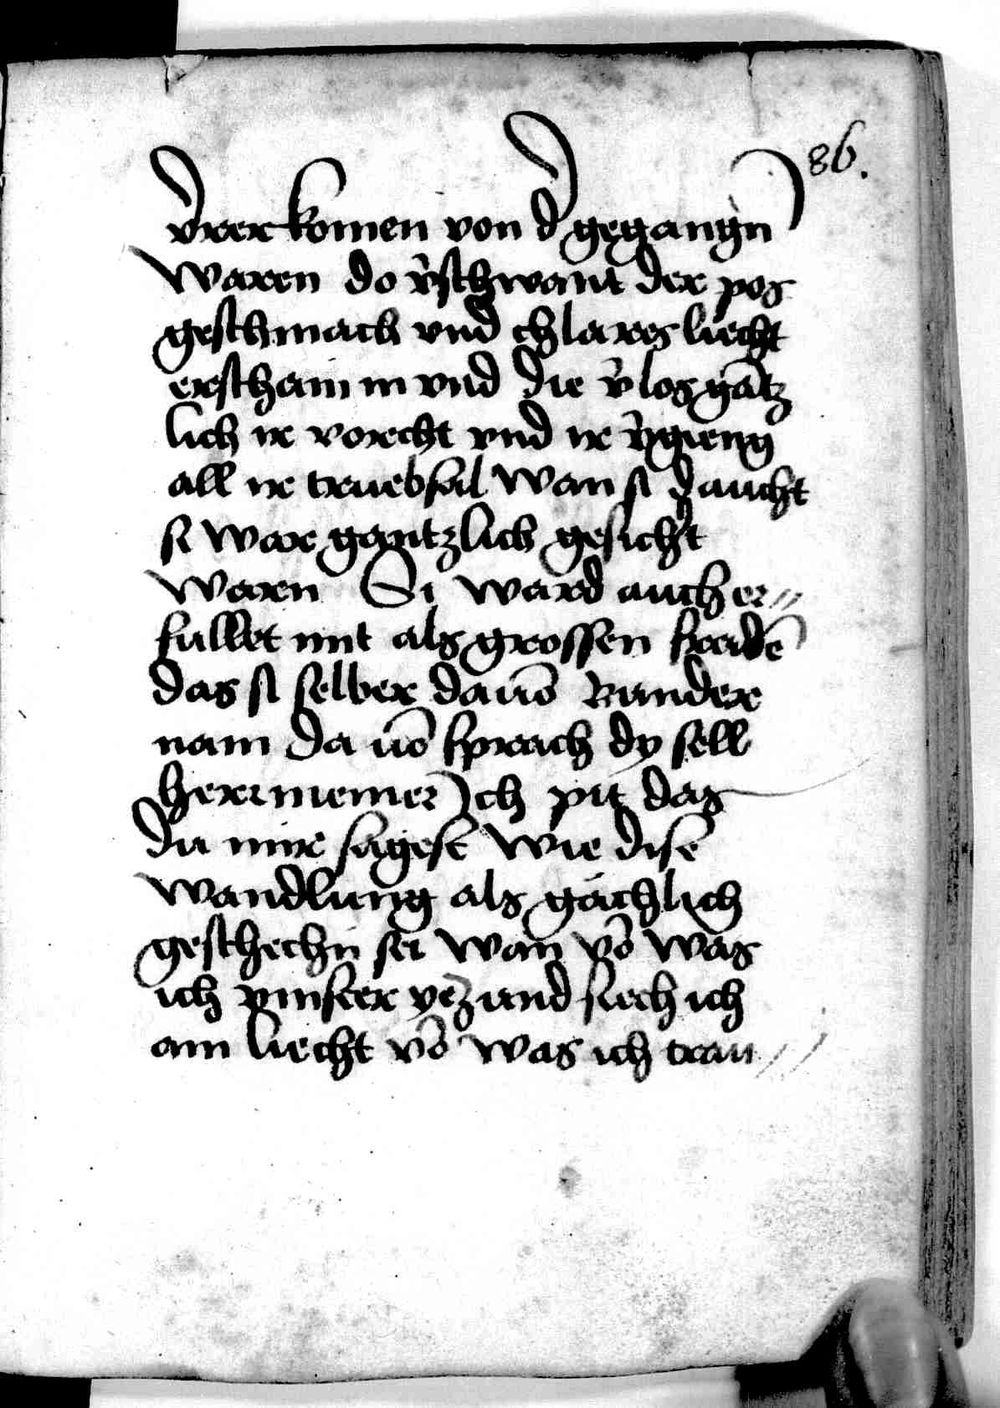 86.
vrer komen von d gegangn
waren do v̈schwant der pos
geschmach vnd chlares liecht
erscham in vnd die v̈los gātz
lich ir vorcht vnd ir v̈gieng
all ir truebsal wan si daucht
si war gantzlich gesicht
warn Si ward auch er//
fullet mit als grossen freidē
das si selber dauō wunder
nam da uō sprach dy sell
herr meiner Ich pit das
du mir sagest wie dise
wandlung als gächlich
geschechn sei wan vō was
ich vinster yezund siech ich
am liecht vō was ich trau//